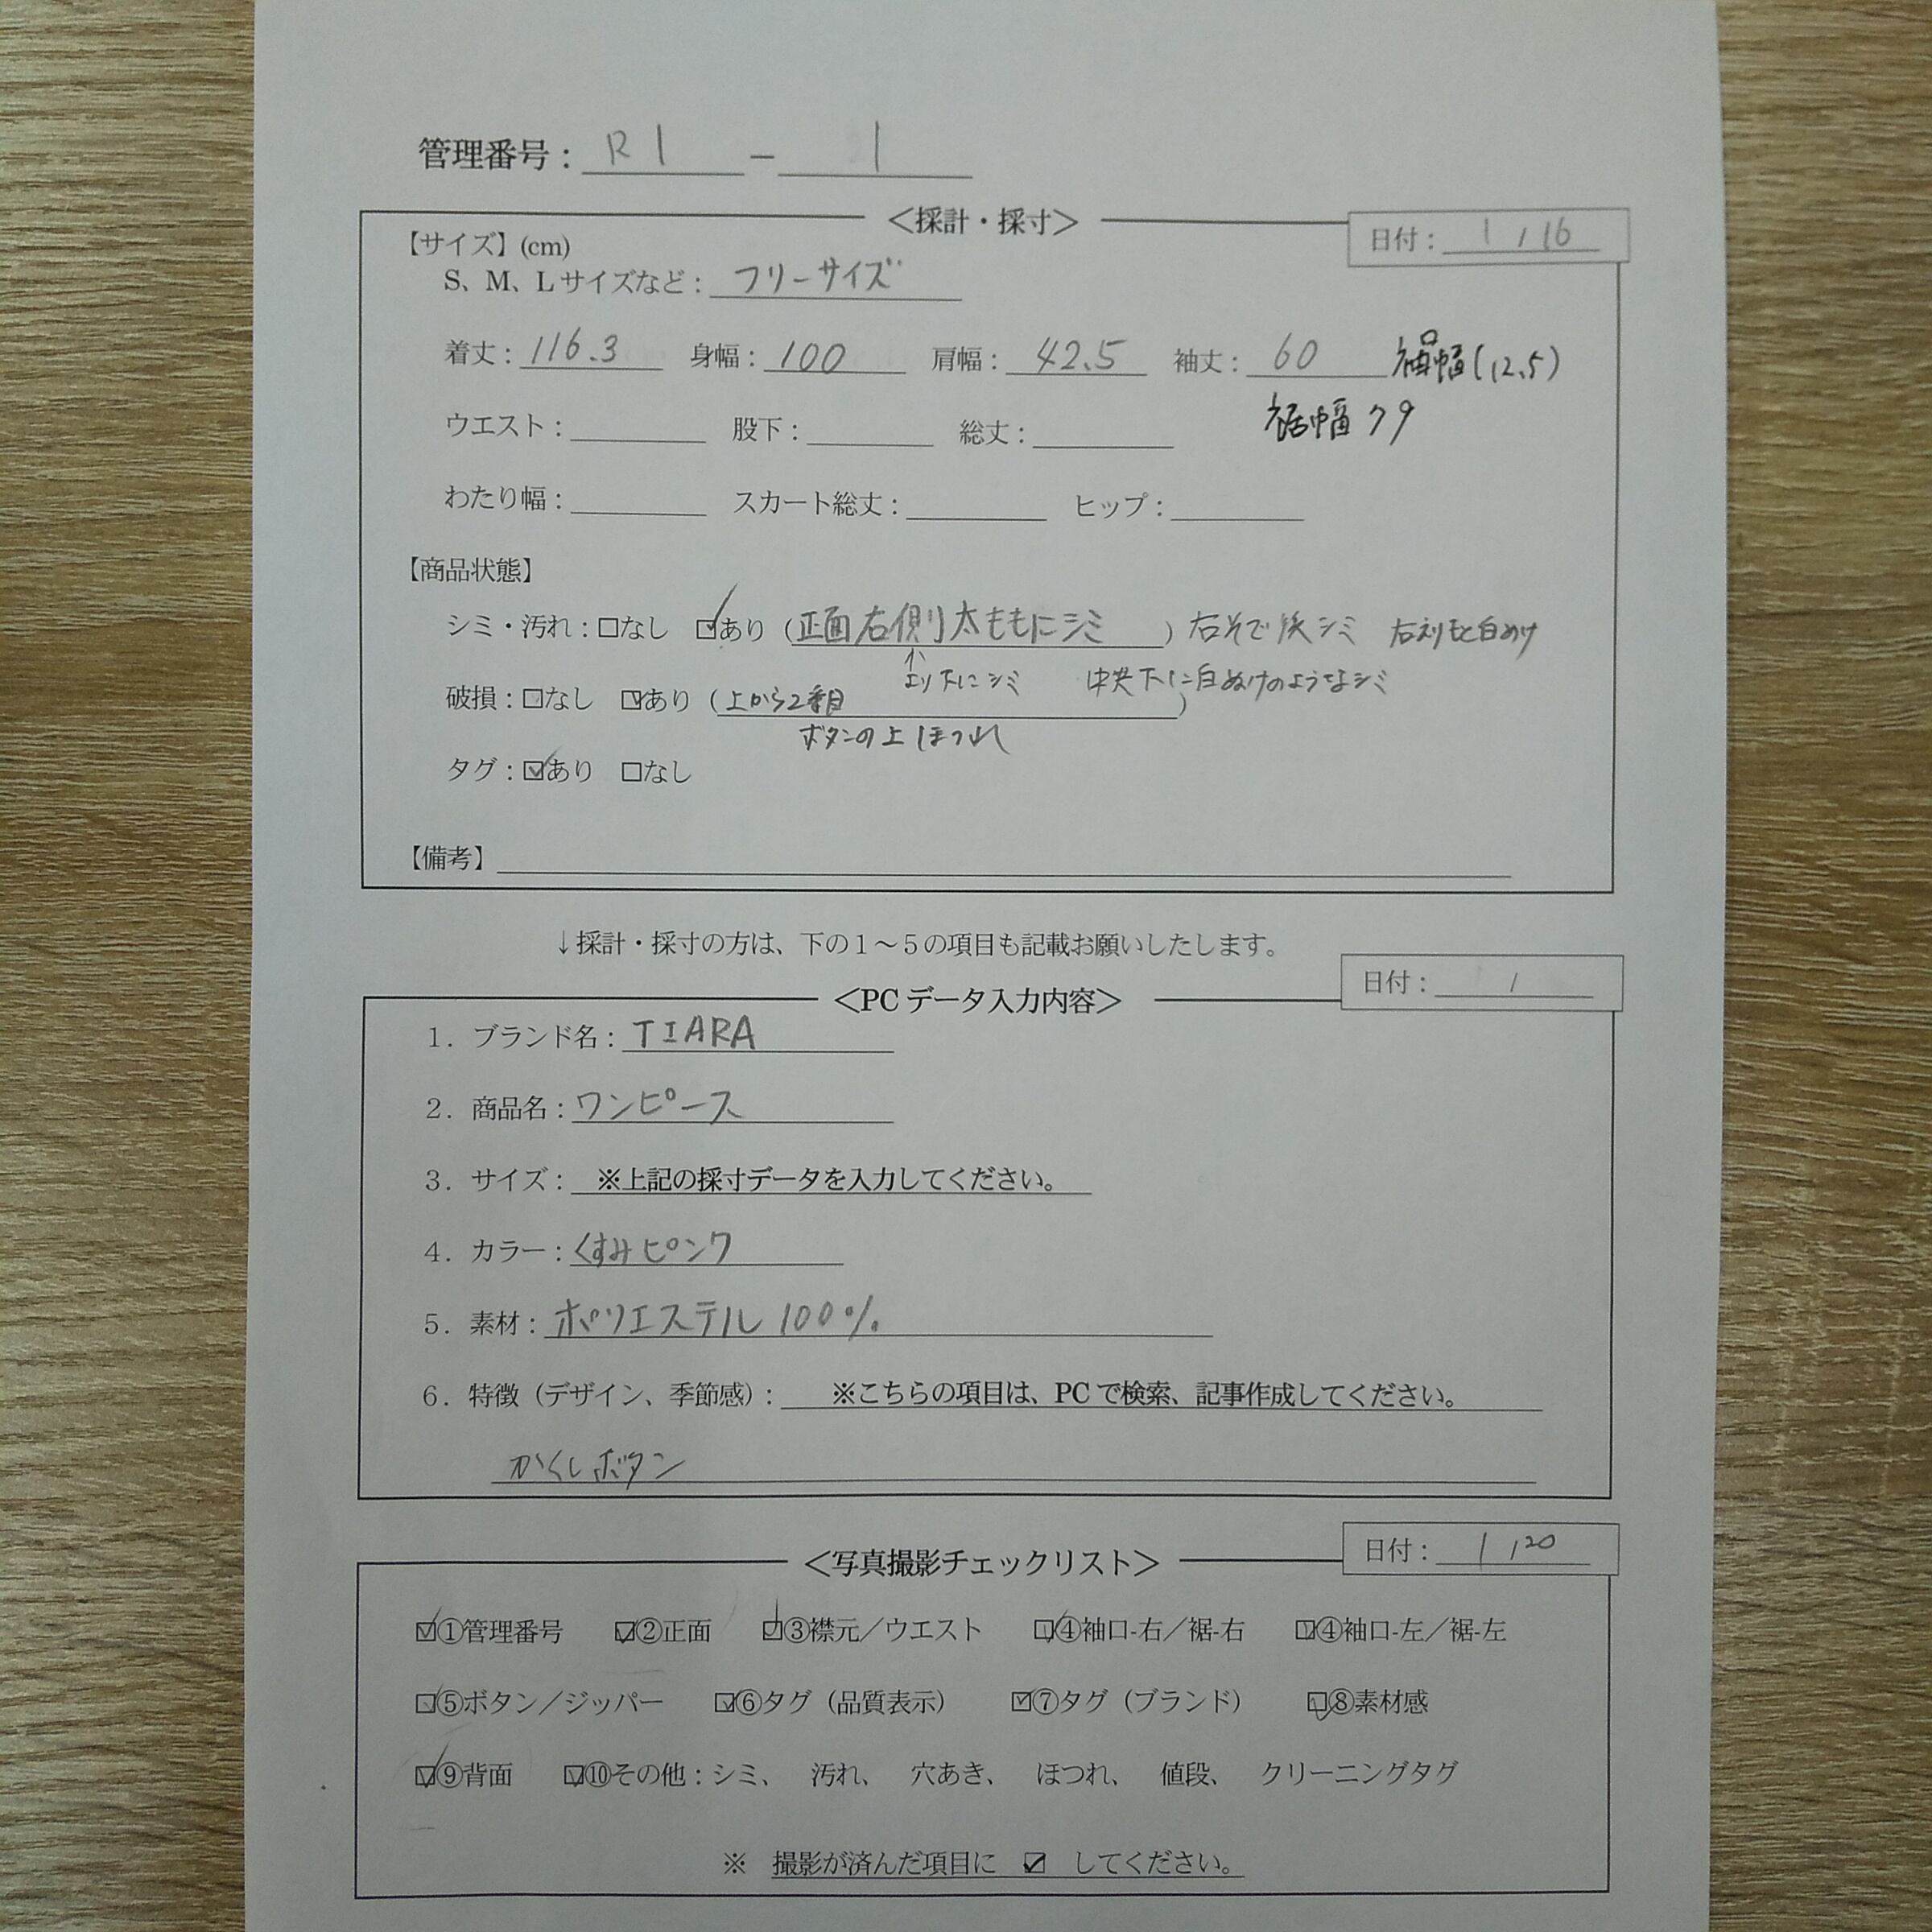 管理番号：R1 － 1
＜採計・採寸＞
日付：1 / 16
【サイズ】(cm)
S、M、Lサイズなど：フリーサイズ
着丈：116.3 身幅：100 肩幅：42.5 袖丈：60 袖幅(12.5)
ウエスト： 股下： 総丈： 裾幅79
わたり幅： スカート総丈： ヒップ：
【商品状態】
シミ・汚れ：□なし ☑あり（正面右側太ももにシミ）右そで シミ 右えりもと白ぬけ
↑えり下にシミ 中央下に白ぬけのようなシミ
破損：□なし ☑あり（上から2番目）
ボタンの上ほつれ
タグ：☑あり □なし
【備考】
↓採計・採寸の方は、下の１～５の項目も記載お願いしたします。
＜PCデータ入力内容＞
日付： /
１．ブランド名：TIARA
２．商品名：ワンピース
３．サイズ：※上記の採寸データを入力してください。
４．カラー：くすみピンク
５．素材：ポリエステル100%
６．特徴（デザイン、季節感）：※こちらの項目は、PCで検索、記事作成してください。
かくしボタン
＜写真撮影チェックリスト＞
日付：1 / 20
☑①管理番号 ☑②正面 ☑③襟元／ウエスト ☑④袖口-右／裾-右 ☑④袖口-左／裾-左
☑⑤ボタン／ジッパー ☑⑥タグ（品質表示） ☑⑦タグ（ブランド） ☑⑧素材感
☑⑨背面 ☑⑩その他：シミ、 汚れ、 穴あき、 ほつれ、 値段、 クリーニングタグ
※ 撮影が済んだ項目に ☑ してください。